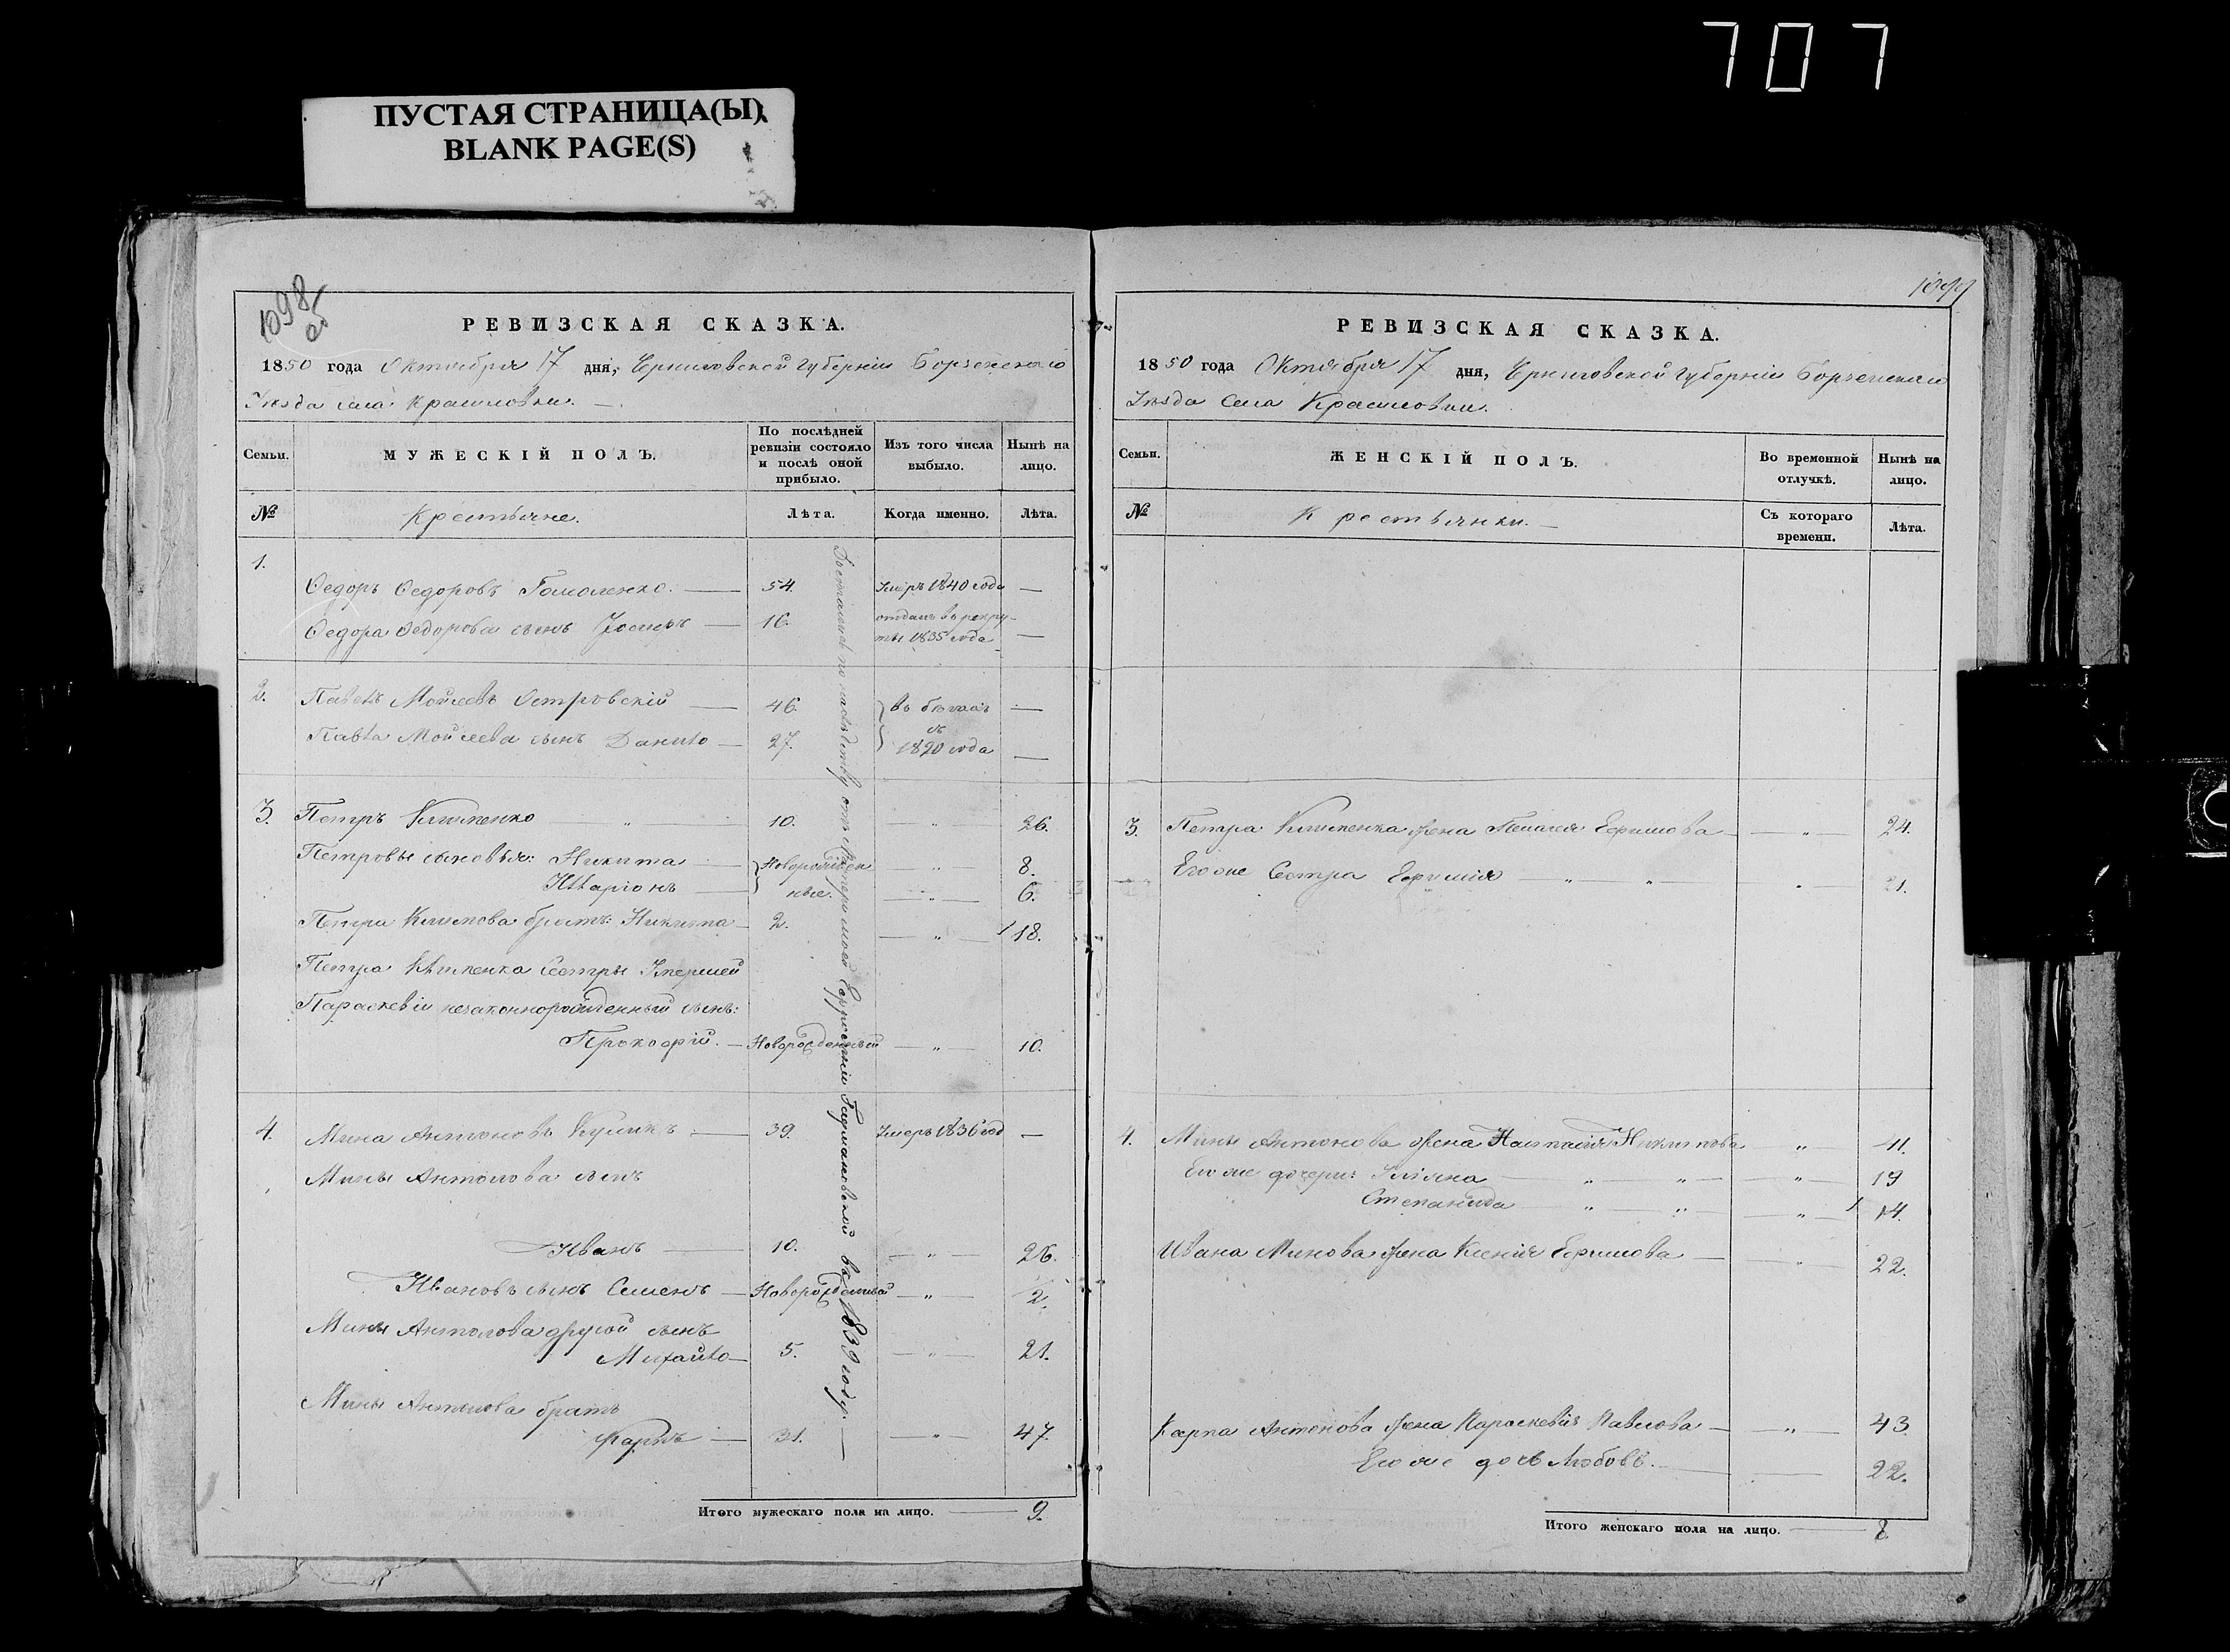 707
ПУСТАЯ СТРАНИЦА(Ы)
BLANK PAGE(S)
1098
об
РЕВИЗСКАЯ СКАЗКА.
1850 года Октября 17 дня, Черниговской Губерніи Борзенскаго
Уѣзда села Крапиловки.
Семьи.
МУЖЕСКІЙ ПОЛЪ.
По послѣдней ревизіи состояло и послѣ оной прибыло.
Изъ того числа выбыло.
Нынѣ на лицо.
№
Крестьяне.
Лѣта.
Когда именно.
Лѣта.
1.
Ѳедоръ Ѳедоровъ Гомоленко. 54. Умеръ 1840 года —
Ѳедора Ѳедорова сынъ Іосифъ — 16. отданъ въ рекру-
ты 1835 года —
2. Павелъ Мойсеевъ Островскій — 46. въ бѣгахъ —
съ
Павла Мойсеева сынъ Данило — 27. 1820 года —
3. Петръ Климпенко — " — 10. — " — 26.
Петровы сыновья: Никита — Новорожден — " — 8.
Илларіонъ — ные. — " — 6.
Петра Климова братъ: Никита — 2. — " — 18.
Петра Климпенка Сестры Умершей
Параскевіи незаконнорожденный сынъ:
Прокофій. — Новорожденный — " — 10.
4. Мина Антоновъ Куликъ — 39. Умеръ 1836 год —
Мины Антонова сынъ
Иванъ — 10. — " — 26.
Ивановъ сынъ Семенъ — Новорожденный — " — 2.
Мины Антонова другой сынъ
Михайло — 5. — " — 21.
Мины Антонова братъ
Карпъ — 31. — " — 47.
Достались по наслѣдству отъ Матери моей Ефросиніи в 1839 году. —
Итого мужескаго пола на лицо. — 9.
1099
РЕВИЗСКАЯ СКАЗКА.
1850 года Октября 17 дня, Черниговской Губерніи Борзенскаго
Уѣзда Села Крапиловки.
Семьи.
ЖЕНСКІЙ ПОЛЪ.
Во временной отлучкѣ.
Нынѣ на лицо.
№
Крестьянки. —
Съ котораго времени.
Лѣта.
3. Петра Климпенка жена Пелагея Ефимова — " — 24.
Его же Сестра Ефимія — " — " — " — 21.
4. Мины Антонова жена Настасія Никитова " — 41.
Его же дочери: Уліяна — " — " — " — 19
Степанида — " — " — " — 14.
Ивана Минова жена Ксенія Ефимова — " — 22.
Карпа Антонова жена Параскевія Павлова — " — 43.
Его же дочь Любовь. — 22.
Итого женскаго пола на лицо. — 8.